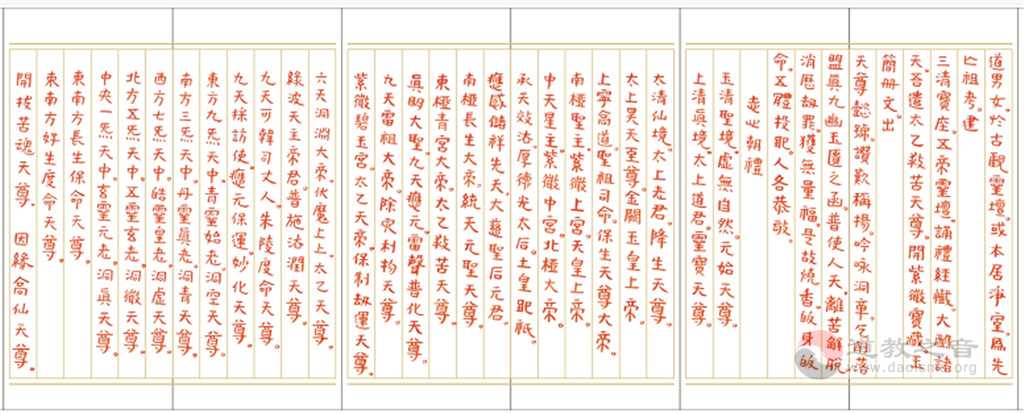 道男女。於古觀靈壇。或本居淨室。爲先
亡祖考。建
三清寶座。五帝靈壇。誦禮經懺。大醮諸
天。吾遣太乙救苦天尊。開紫微寶藏。玉
簡册文。出
天尊懿號。讚歎稱揚。吟咏洞章。乞開落
盟眞九幽玉匱之函。普使人天。離苦解脫。
消歷劫罪。獲無量福。是故燒香。皈身皈
命。五體投地。人各恭敬。
志心朝禮
玉清聖境。虛無自然。元始天尊。
上清眞境。太上道君。靈寶天尊。
太清仙境。太上老君。降生天尊。
太上昊天至尊。金闕玉皇上帝。
上寧高道。聖祖司命。保生天尊大帝。
南極聖主。紫微上宮。天皇上帝。
中天星主。紫微中宮。北極大帝。
承天效法。厚德光大后。土皇地祇。
應感儲祥。先天大慈聖后元君。
南極長生大帝。統天元聖天尊。
東極青宮大帝。太乙救苦天尊。
眞明大聖。九天應元。雷聲普化天尊。
九天雷祖大帝。除災利物天尊。
紫微碧玉宮。太乙天帝。保制劫運天尊。
六天洞淵大帝。伏魔上上。太乙天尊。
綠波天主帝君。普施法潤天尊。
九天可韓司丈人。朱陵度命天尊。
九天採訪使。應元保運。妙化天尊。
東方九炁天中。青靈始老。洞空天尊。
南方三炁天中。丹靈眞老。洞青天尊。
西方七炁天中。皓靈皇老。洞虛天尊。
北方五炁天中。五靈玄老。洞微天尊。
中央一炁天中。玄靈元老。洞眞天尊。
東南方長生保命天尊。
東南方好生度命天尊。
開拔苦魂天尊。 因緣高仙天尊。
道教之音
www.daoisms.org